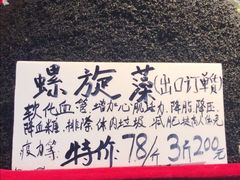 螺旋藻(出口订单货)
软化血管增加心肌活力、降脂、降压
降血糖、排涤体内垃圾 减肥提高人体免
疫力等. 特价 78/斤 3斤200元